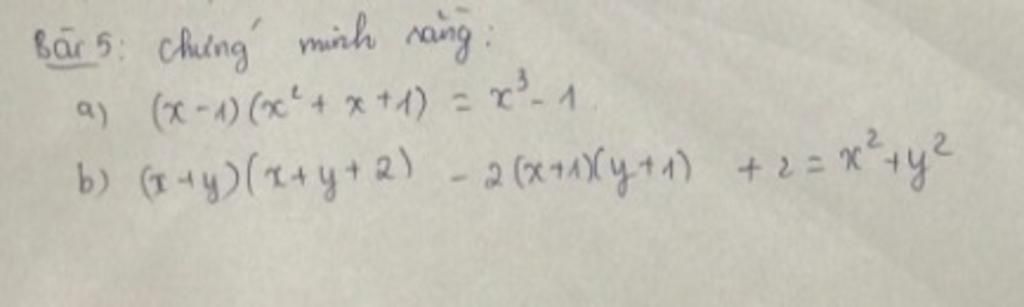 Bài 5: Chứng minh rằng:
a) (x-1)(x² + x +1) = x³- 1
b) (x+y)(x+y+2) - 2(x+1)(y+1) + 2 = x²+y²